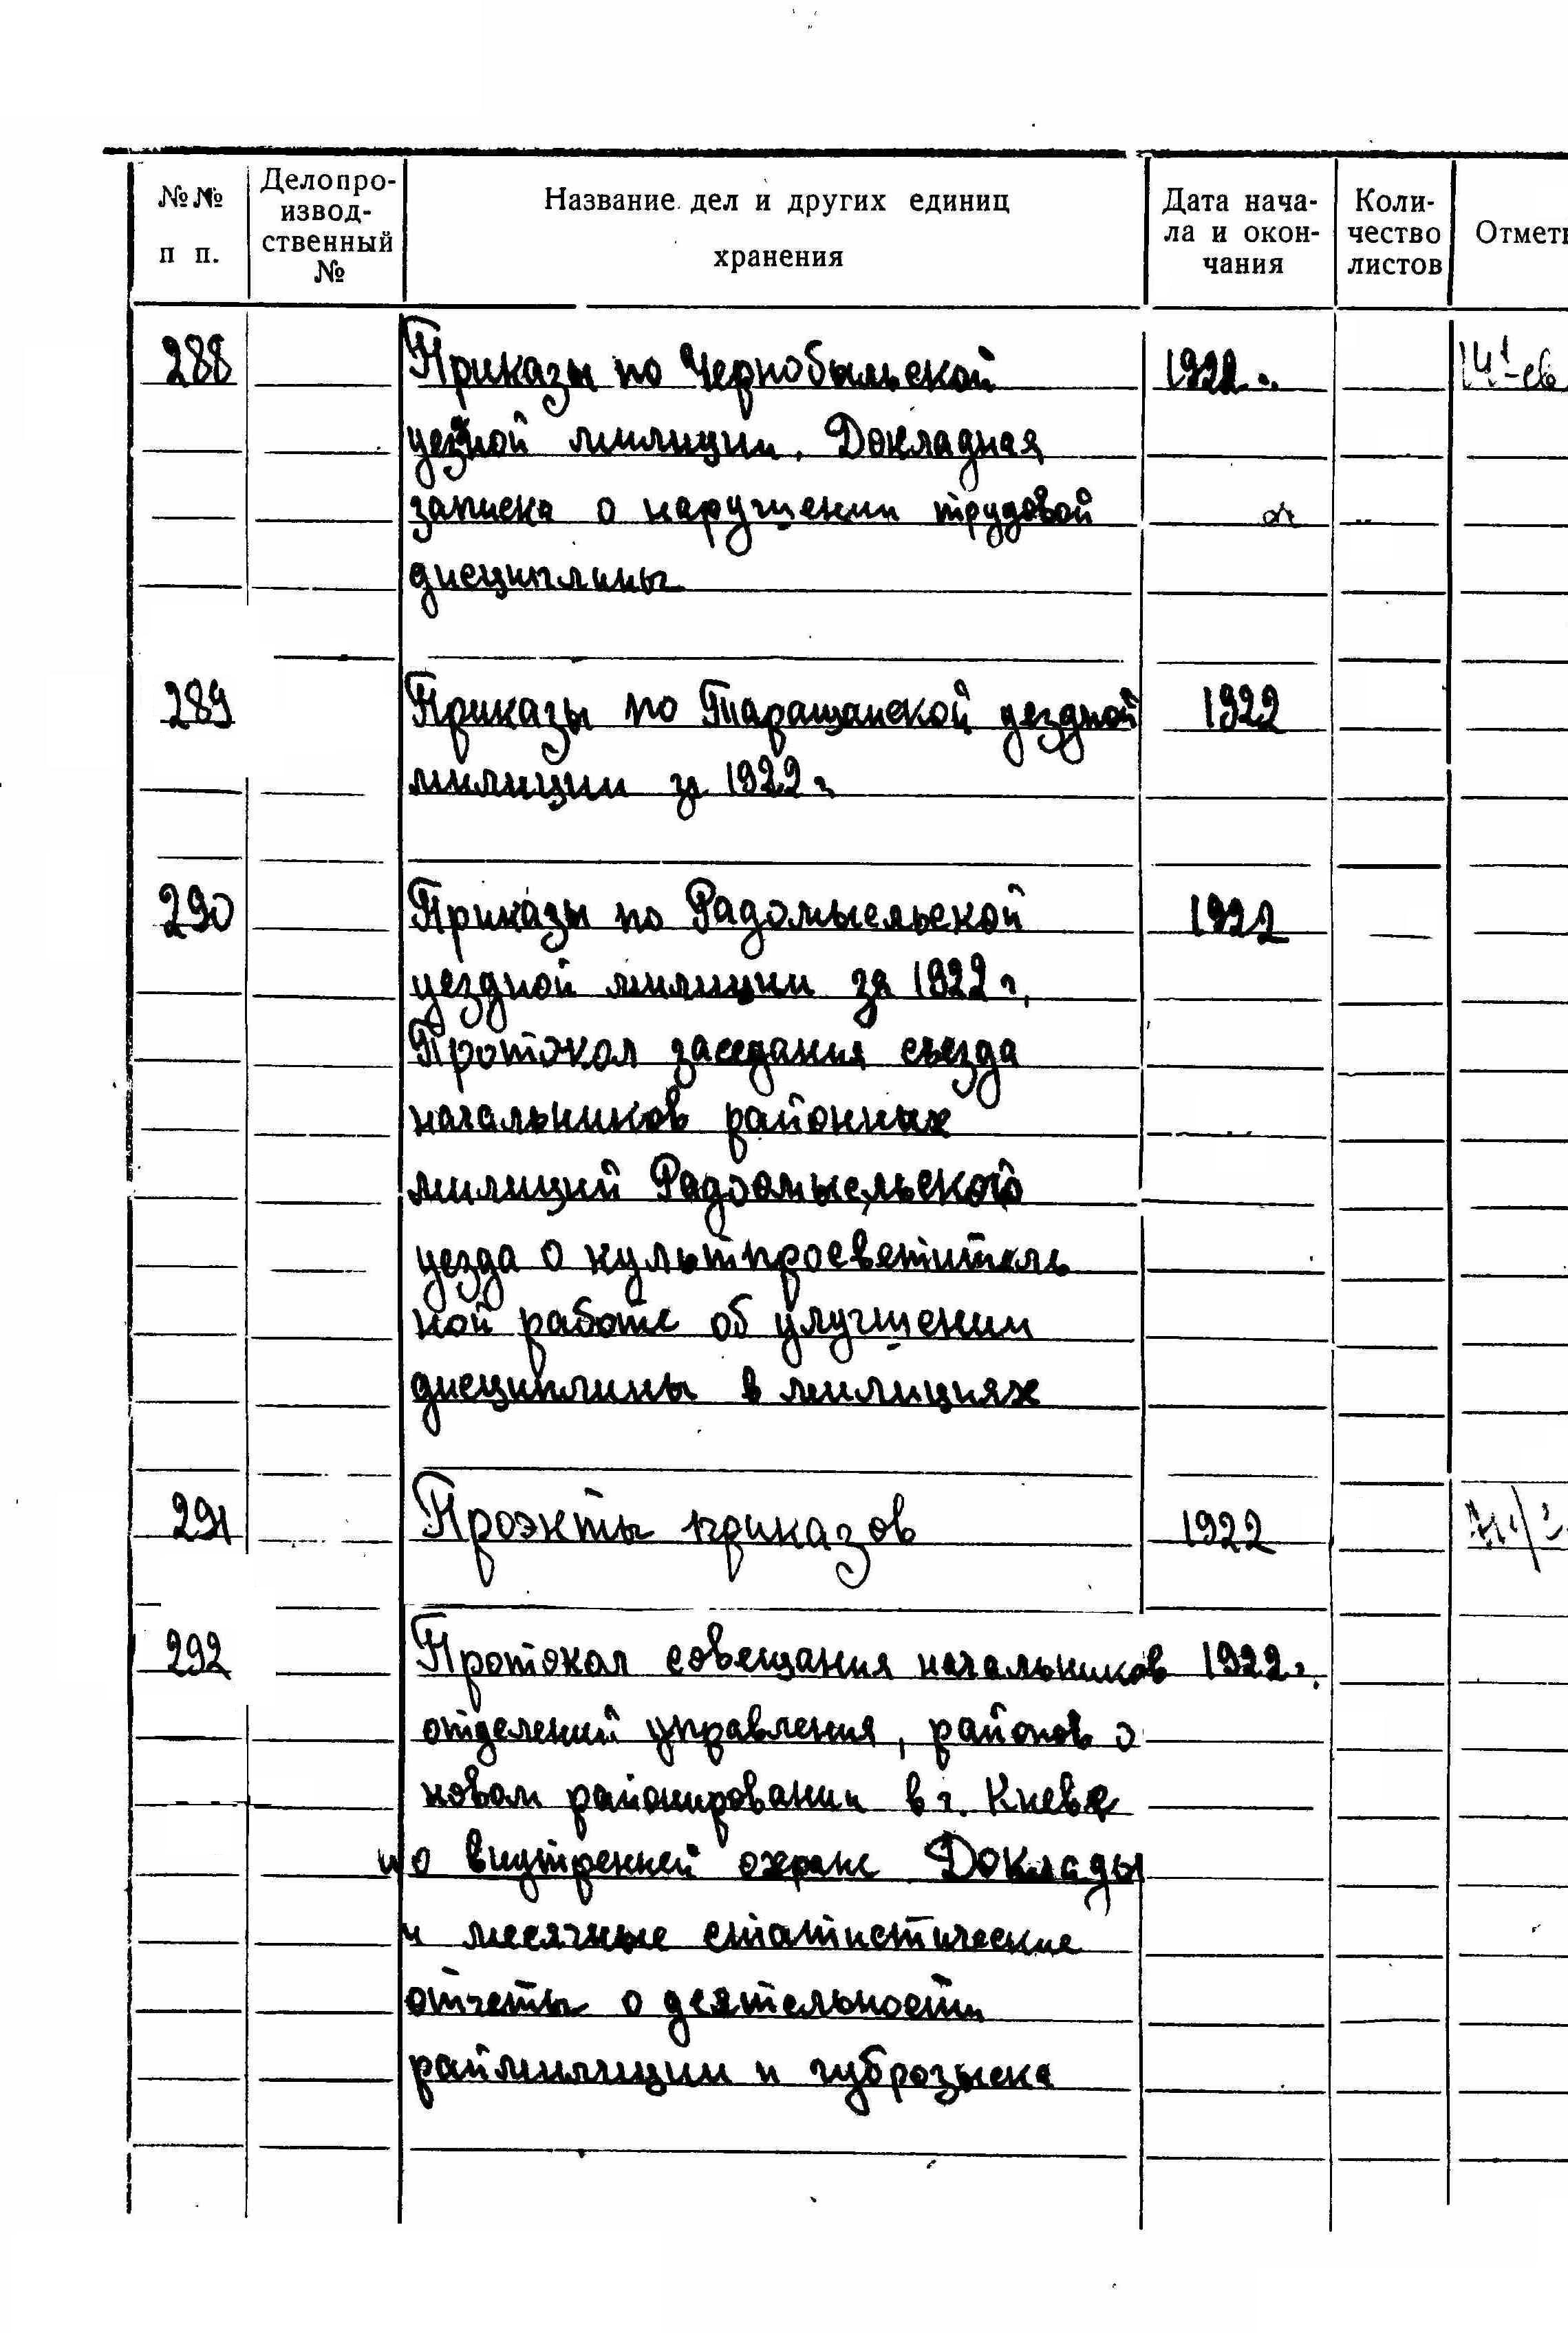 №№ п п.
Делопро-
извод-
ственный
№
Название дел и других единиц
хранения
Дата нача-
ла и окон-
чания
Коли-
чество
листов
Отметк
288 Приказы по Чернобыльской 1922 г.
уездной милиции. Докладная
записка о нарушении трудовой
дисциплины
289 Приказы по Таращанской уездной 1922
милиции за 1922 г.
290 Приказы по Радомысельской 1922
уездной милиции за 1922 г.
Протокол заседания съезда
начальников районных
милиций Радомысельского
уезда о культпросветитель
ной работе об улучшении
дисциплины в милициях
291 Проэкты приказов 1922
292 Протокол совещания начальников 1922 г.
отделений управления, районов о
новом районировании в г. Киеве
и о внутренней охране Доклады
и месячные статистические
отчеты о деятельности
раймилиции и губрозыска